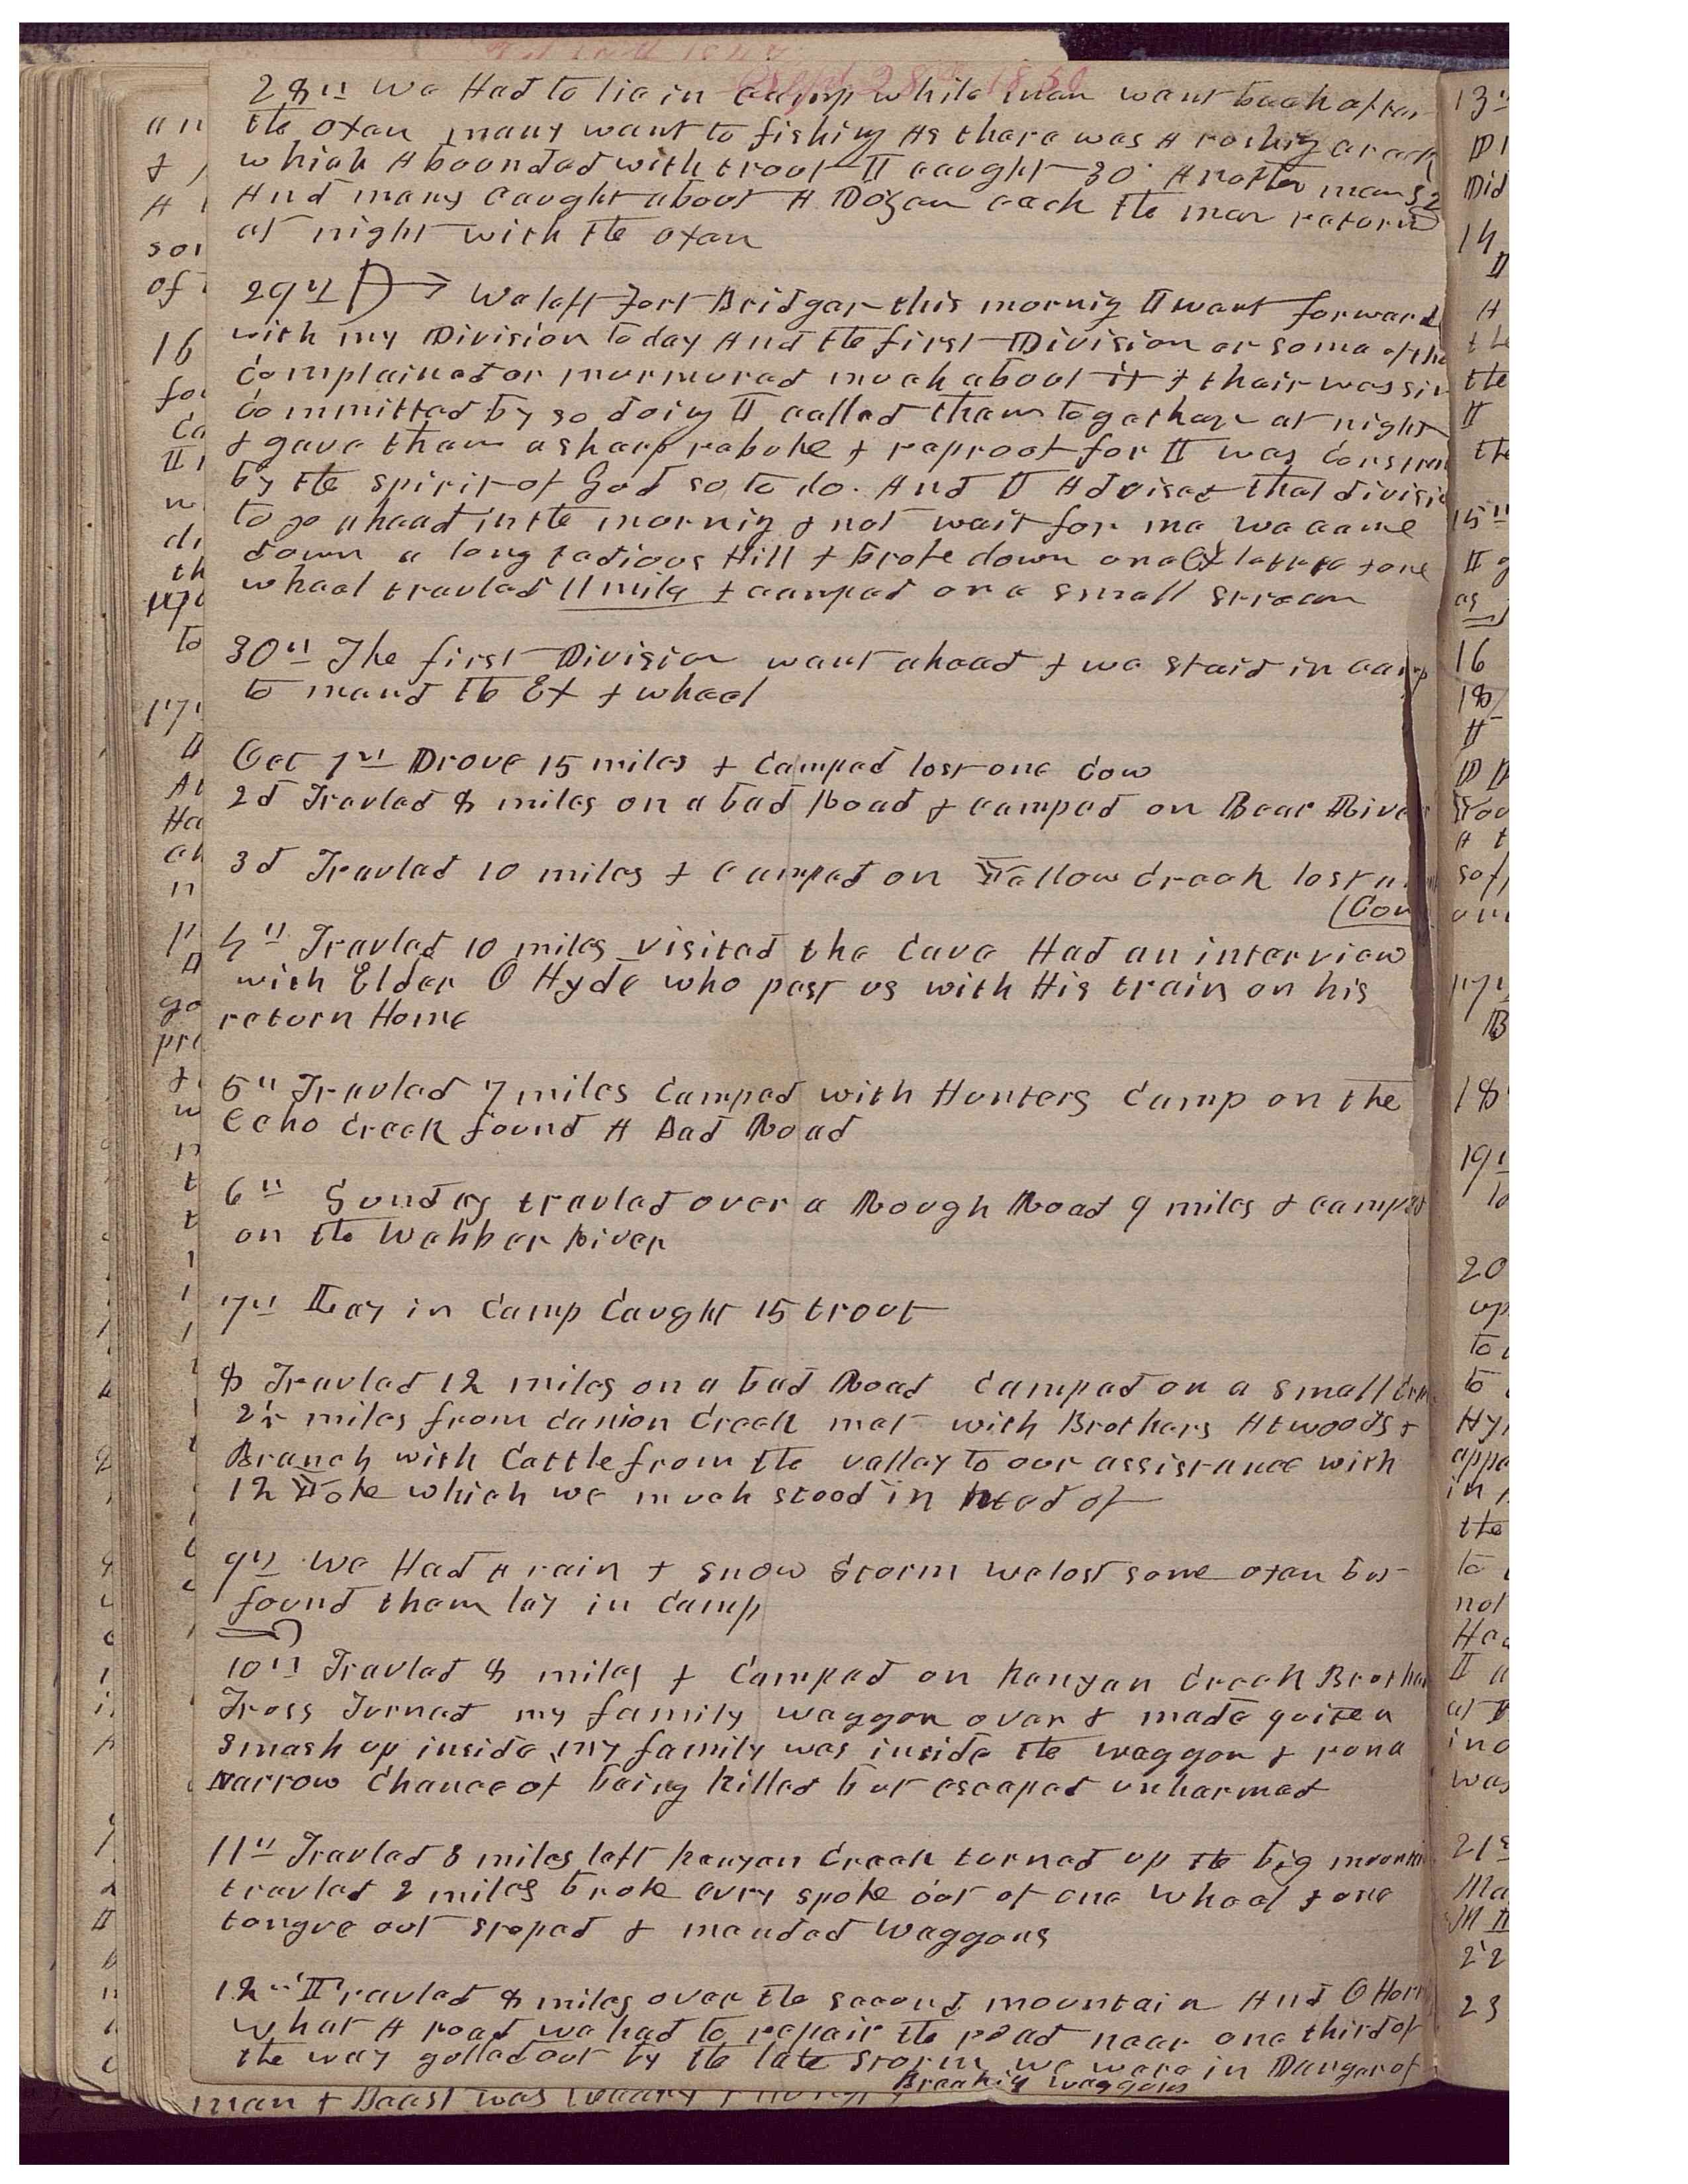 Sept 28 1850
28th We Had to lie in camp while men went back after
the oxen many went to fishing As there was A roshing creek
which Abounded with trout I caught 30. Another man 32
And many caught about A Dozen each the men returnd
at night with the oxen
29th We left Fort Bridger this morning I went forward
with my Division today And the first Division or some of the
complained or murmured much about it & their was sin
committed by so doing I called them together at night
& gave them a sharp rebuke & reproof for I was constran
by the spirit of God so to do. And I Advised that divisi
to go ahead in the morning & not wait for me we came
down a long tedious Hill & broke down one & one
wheel travled 11 mile & camped on a small stream
30th The first Division went ahead & we staid in camp
to mend the Ex & wheel
Oct 1st Drove 15 miles & camped lost one cow
2d Travled 8 miles on a bad Road & camped on Bear River
3d Travled 10 miles & camped on Yellow Creek lost a
(Cow
4th Travled 10 miles visited the Cave Had an interview
with Elder O Hyde who past us with His train on his
return Home
5th Travled 7 miles Camped with Hunters Camp on the
Echo Creek found A Bad Road
6th Sunday travled over a Rough Road 9 miles & camped
on the Webber River
7th Lay in Camp Caught 15 trout
8 Travled 12 miles on a bad Road Camped on a small
2½ miles from Canion Creek met with Brothers Atwoods &
Branch with Cattle from the valley to our assistance with
12 Yoke which we much stood in need of
9th We Had A rain & snow storm we lost some oxen but
found them lay in Camp
10th Travled 8 miles & Camped on Kanyan Creek Brother
Tross Turned my family waggon over & made quite a
smash up inside, my family was inside the waggon & run a
Narrow Chance of being killed but escaped unharmed
11th Travled 8 miles left Kanyan Creek turned up the big mountin
travled 2 miles broke evry spoke out of one wheel & one
tongue out stoped & mended Waggons
12th Travled 8 miles over the second mountain And O Horr
What A road we had to repair the road near one third of
the way gulled out by the late storm we were in Danger of
Breaking waggons
man & Beast was weary &